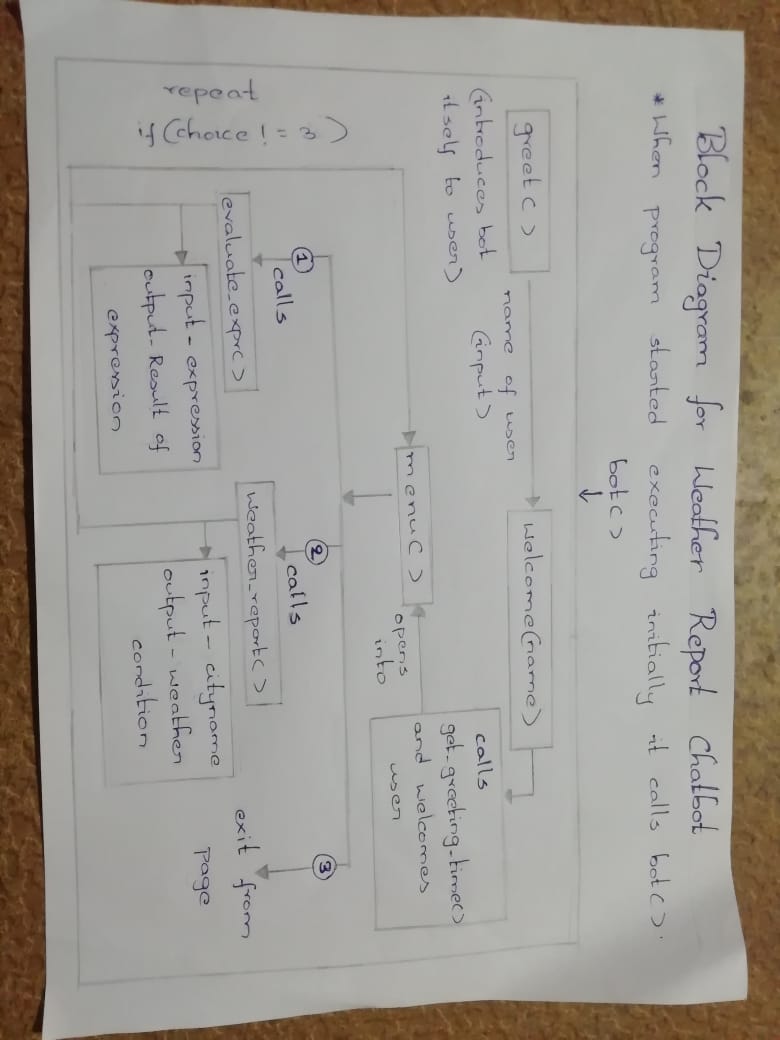 Block Diagram for Weather Report Chatbot
* When program started executing initially it calls bot().
bot()
↓
greet()
(introduces bot
itself to user)
name of user
(input)
welcome(name)
calls
get_greeting_time()
and welcomes
user
opens
into
menu()
repeat
if(choice != 3)
1
calls
evaluate_expr()
input - expression
output - Result of
expression
2
calls
weather_report()
input - cityname
output - weather
condition
3
exit from
page